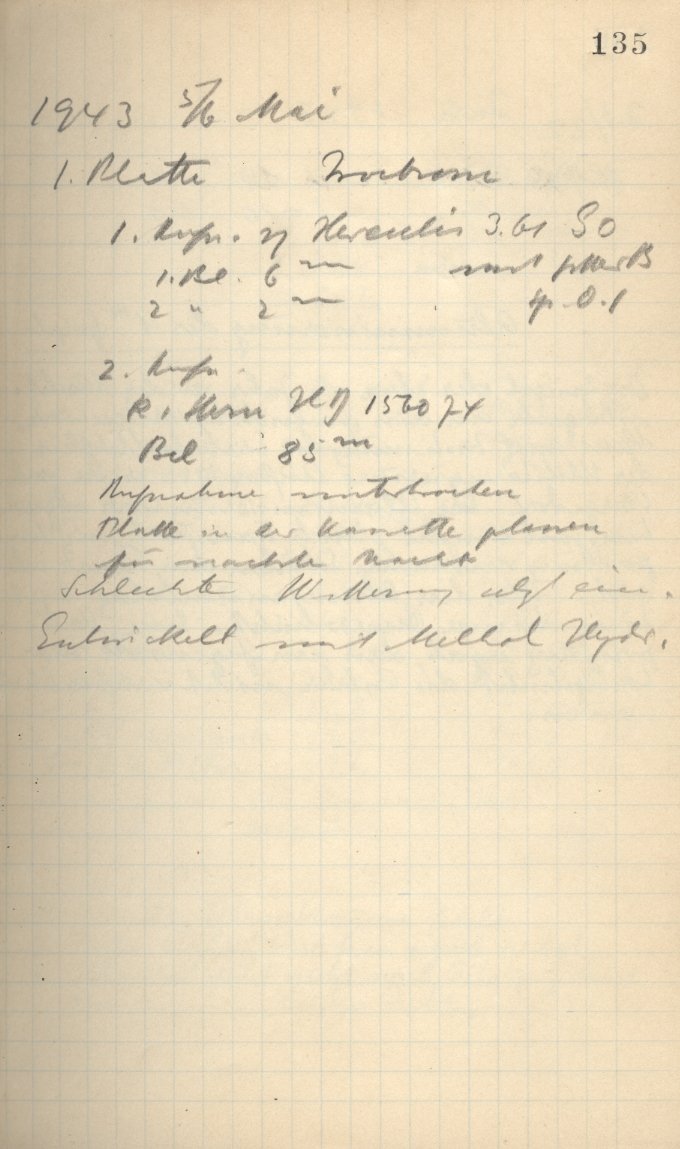 135
1943 5/6 Mai
1. Platte
1. Aufn. η Herculis 3.61
1. Bel. 6 m mit
2 " 2 m 0.1
2. Aufn.
HD 156074
Bel 85 m
Aufnahme unterbrochen
Platte in der Kassette
für nächste Nacht
Schlechte Witterung
Entwickelt mit Methol Hydr.